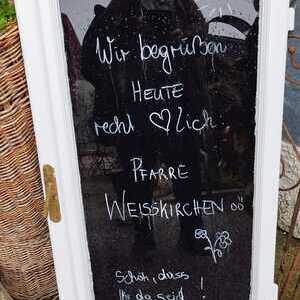 Wir begrüßen
HEUTE
recht ♡lich
PFARRE
WEISSKIRCHEN OÖ
Schön, dass
Ihr da seid!